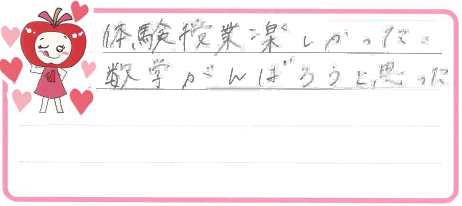 体験授業楽しかった。
数学がんばろうと思った